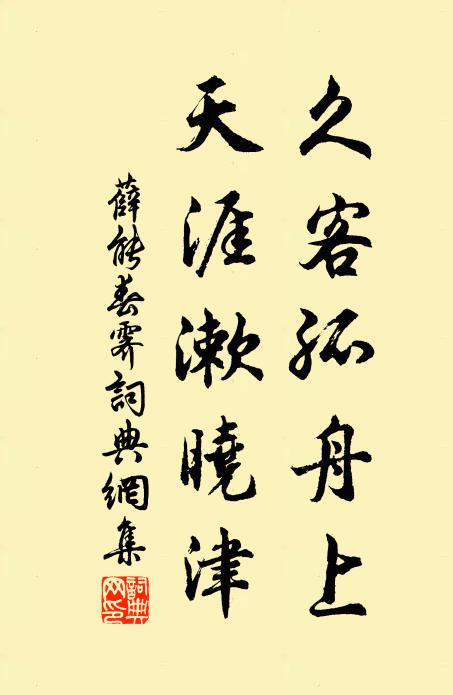 久客孤舟上
天涯漱曉津
薛能春霽詞典網集
詞典
网印